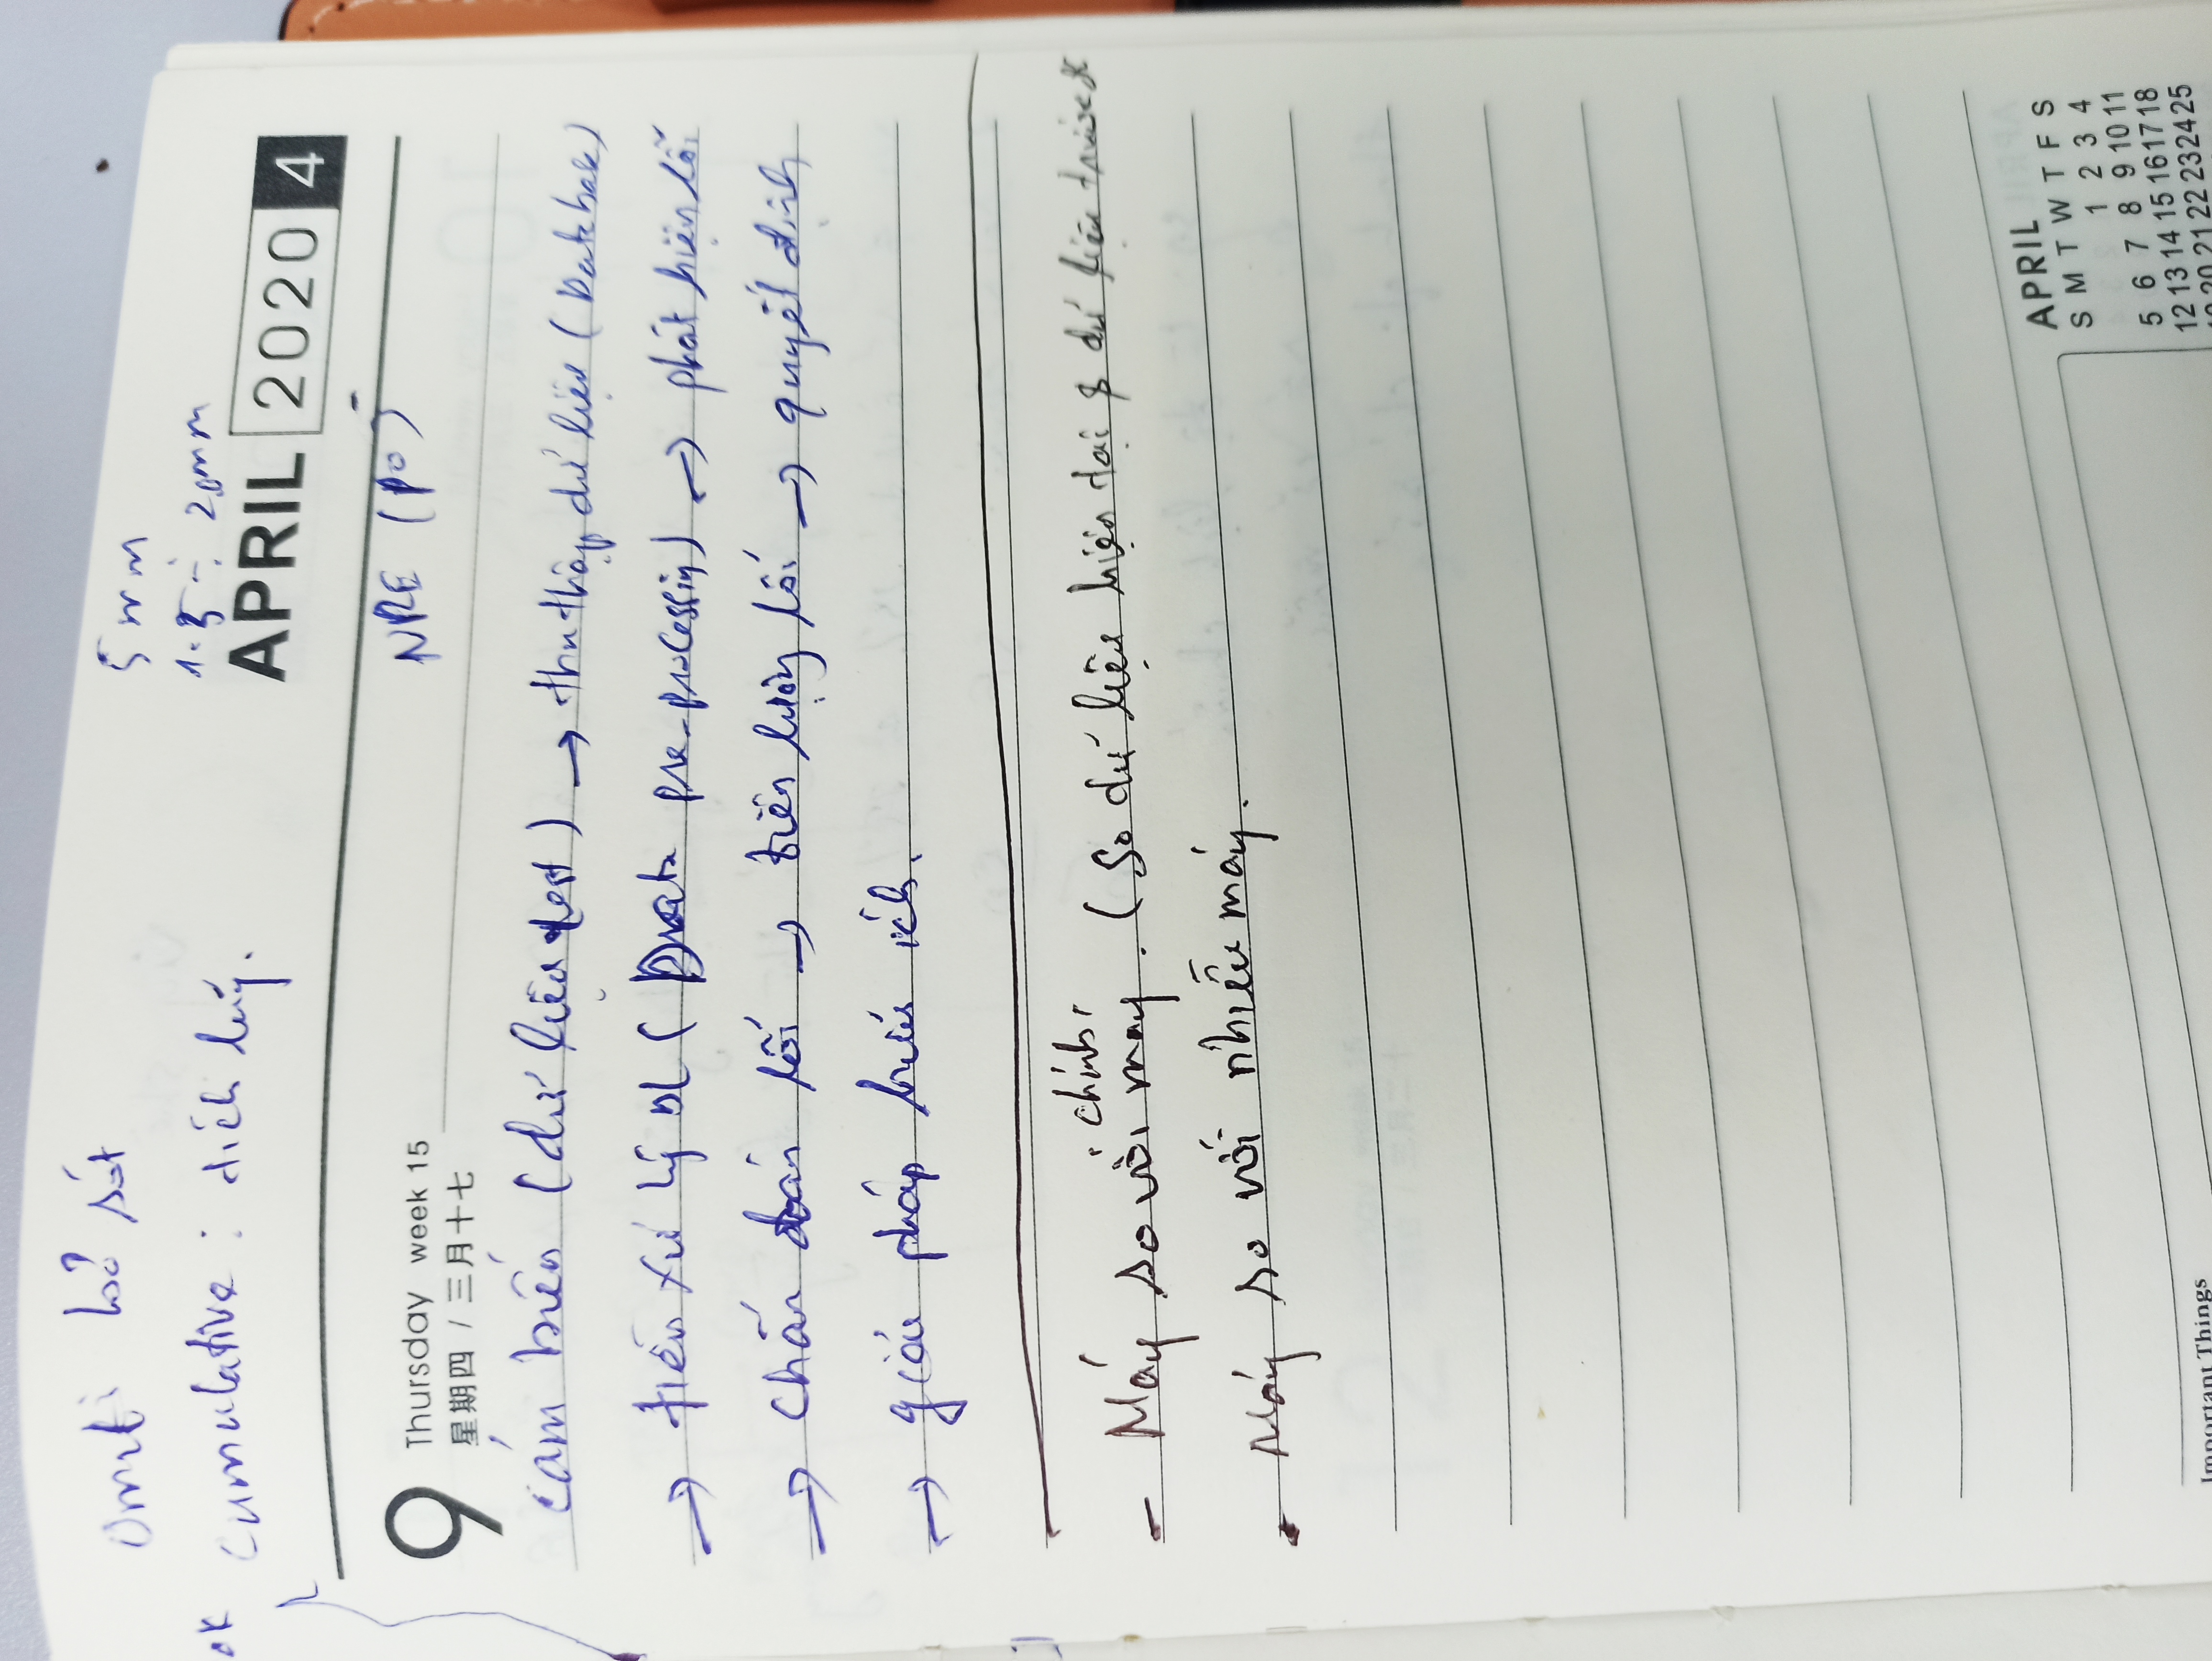 Omiti bỏ sót
5mm
1.5 ÷ 2,0mm
ok Cumulative : tích lũy.
APRIL 2020 4
NRE (PO)
9 Thursday week 15
星期四 / 三月十七
cảm biến (dữ liệu test) → thu thập dữ liệu (Databae)
→ tiền xử lý DL ( Data pre-processing) → phát hiện lỗi
→ chẩn đoán lỗi → tiên lượng lỗi → quyết định
→ giải pháp hữu ích.
chính
- Máy so với máy. (So dữ liệu hiện tại & dữ liệu trước
- Máy so với nhiều máy.
APRIL
S M T W T F S
1 2 3 4
5 6 7 8 9 10 11
12 13 14 15 16 17 18
20 21 22 23 24 25
Important Things